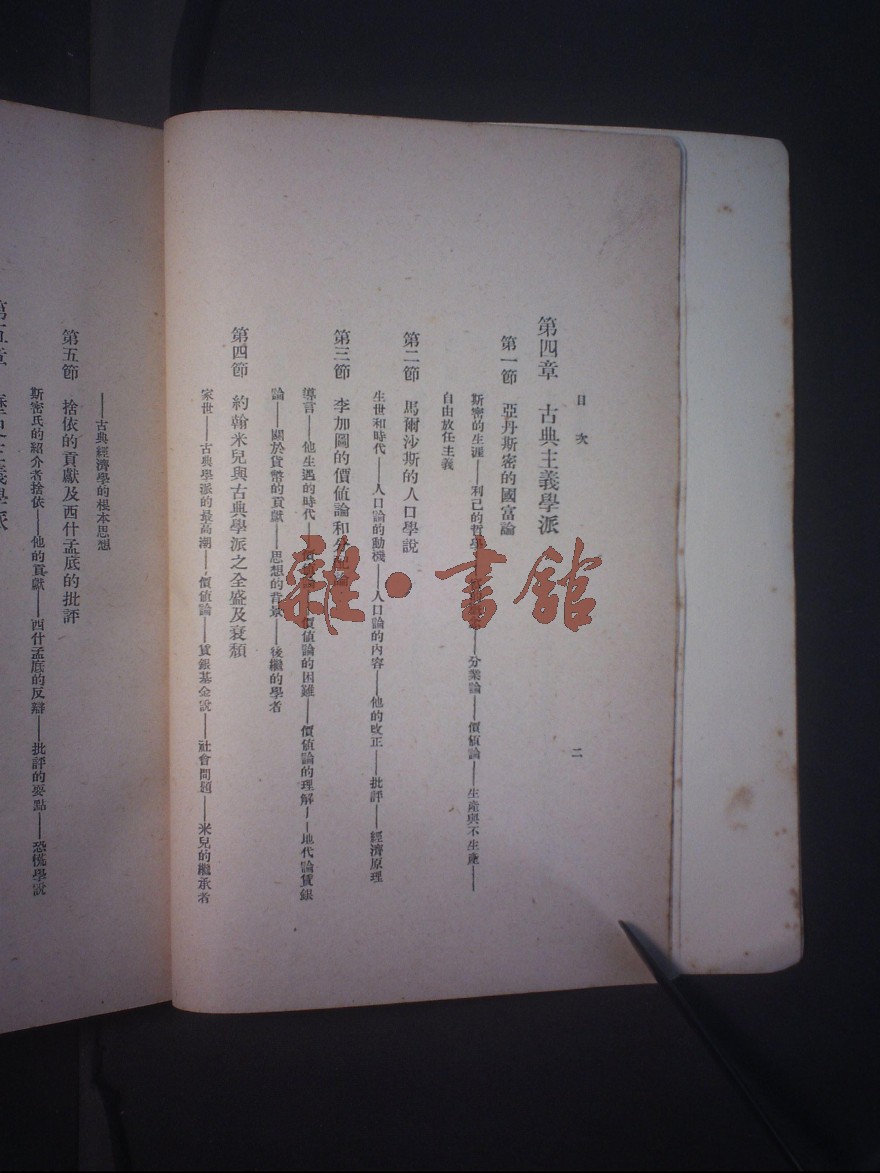 目次
二
第四章 古典主義學派
第一節 亞丹斯密的國富論
斯密的生涯——利己的哲學——分業論——價値論——生產與不生產——
自由放任主義
第二節 馬爾沙斯的人口學說
生世和時代——人口論的動機——人口論的內容——他的改正——批評——經濟原理
第三節 李加圖的價値論和分配論
導言——他生遇的時代——價値論——價値論的困難——價値論的理解——地代論賃銀
論——關於貨幣的貢獻——思想的背景——後繼的學者
第四節 約翰米兒與古典學派之全盛及衰頹
家世——古典學派的最高潮——價値論——賃銀基金說——社會問題——米兒的繼承者
——古典經濟學的根本思想
第五節 捨依的貢獻及西什孟底的批評
斯密氏的紹介者捨依——他的貢獻——西什孟底的反辯——批評的要點——恐慌學說
第五章 歷史主義學派
雜·書館